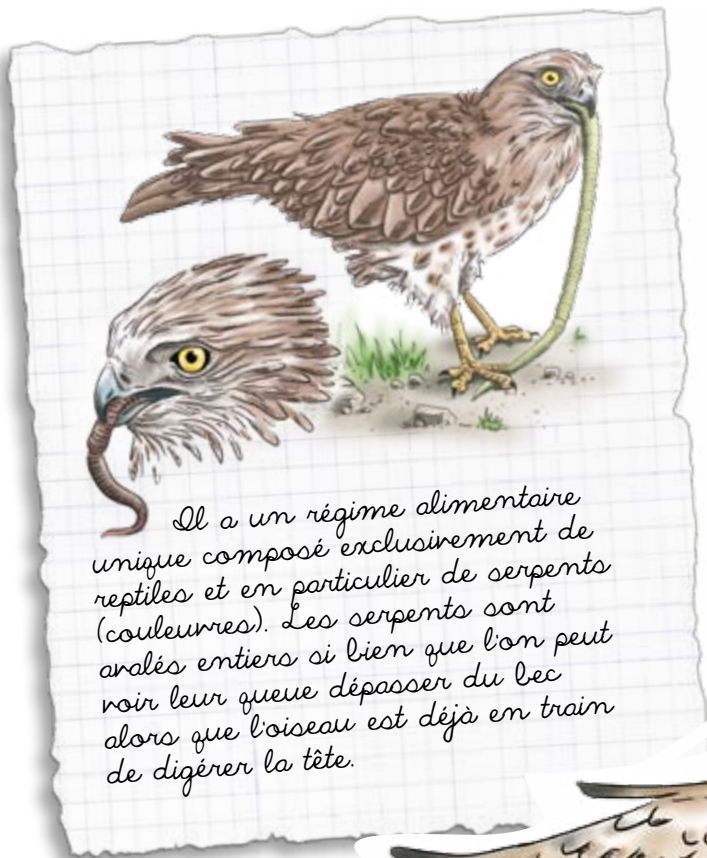 Il a un régime alimentaire
unique composé exclusivement de
reptiles et en particulier de serpents
(couleuvres). Les serpents sont
avalés entiers si bien que l'on peut
voir leur queue dépasser du bec
alors que l'oiseau est déjà en train
de digérer la tête.